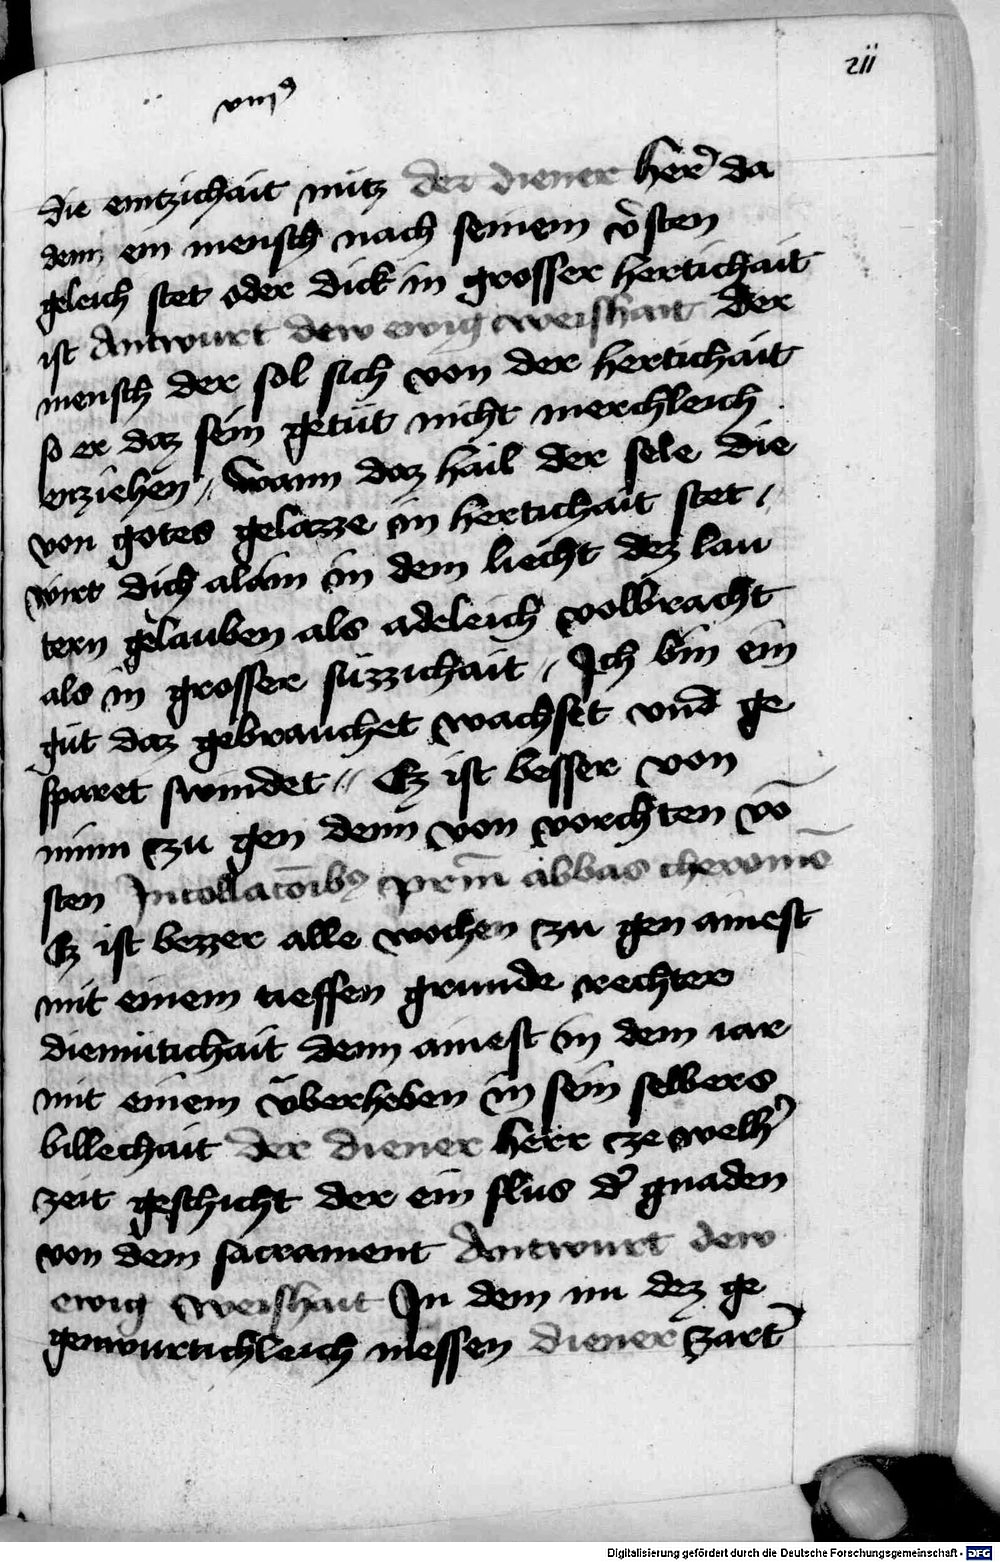 zii
viii⁹
die emtzichait nütz der diener her̉ da
denn ein mensch nach seinem v̉sten
geleich stet oder dick in grosser hertichait
ist Antwurt dew ewig weishait Der
mensch der sol sich von der hertichait
so er daz sein getüt nicht merchleich
enziehen // Wann daz hail der sele die
von gotes gelazze in hertichait stet /
wirt dich alain in dem liecht dez lau
tern gelauben als adeleich volbracht
als in grosser süzzichait // Ich bin ein
güt daz gebrauchet wachset vnd̄ ge
sparet swindet // Ez ist besser von
minn zu gen denn von vorchten vō
sten In collacōıbꝫ pr̄m abbas cheromō
Ez ist bezzer alle wochen zu gen ainest
mit einem tieffen grunde rechter
diemütichait denn ainest in dem iar
mit einem überheben in sein selbers
billechait der diener herr ze welh̉
zeit geschicht der ein flus d̉ gnaden
von dem sacrament Antwurt dew
ewig weishait In dem nu dez ge
genwurtichleich niessen diener zart̉
Digitalisierung gefördert durch die Deutsche Forschungsgemeinschaft - DFG